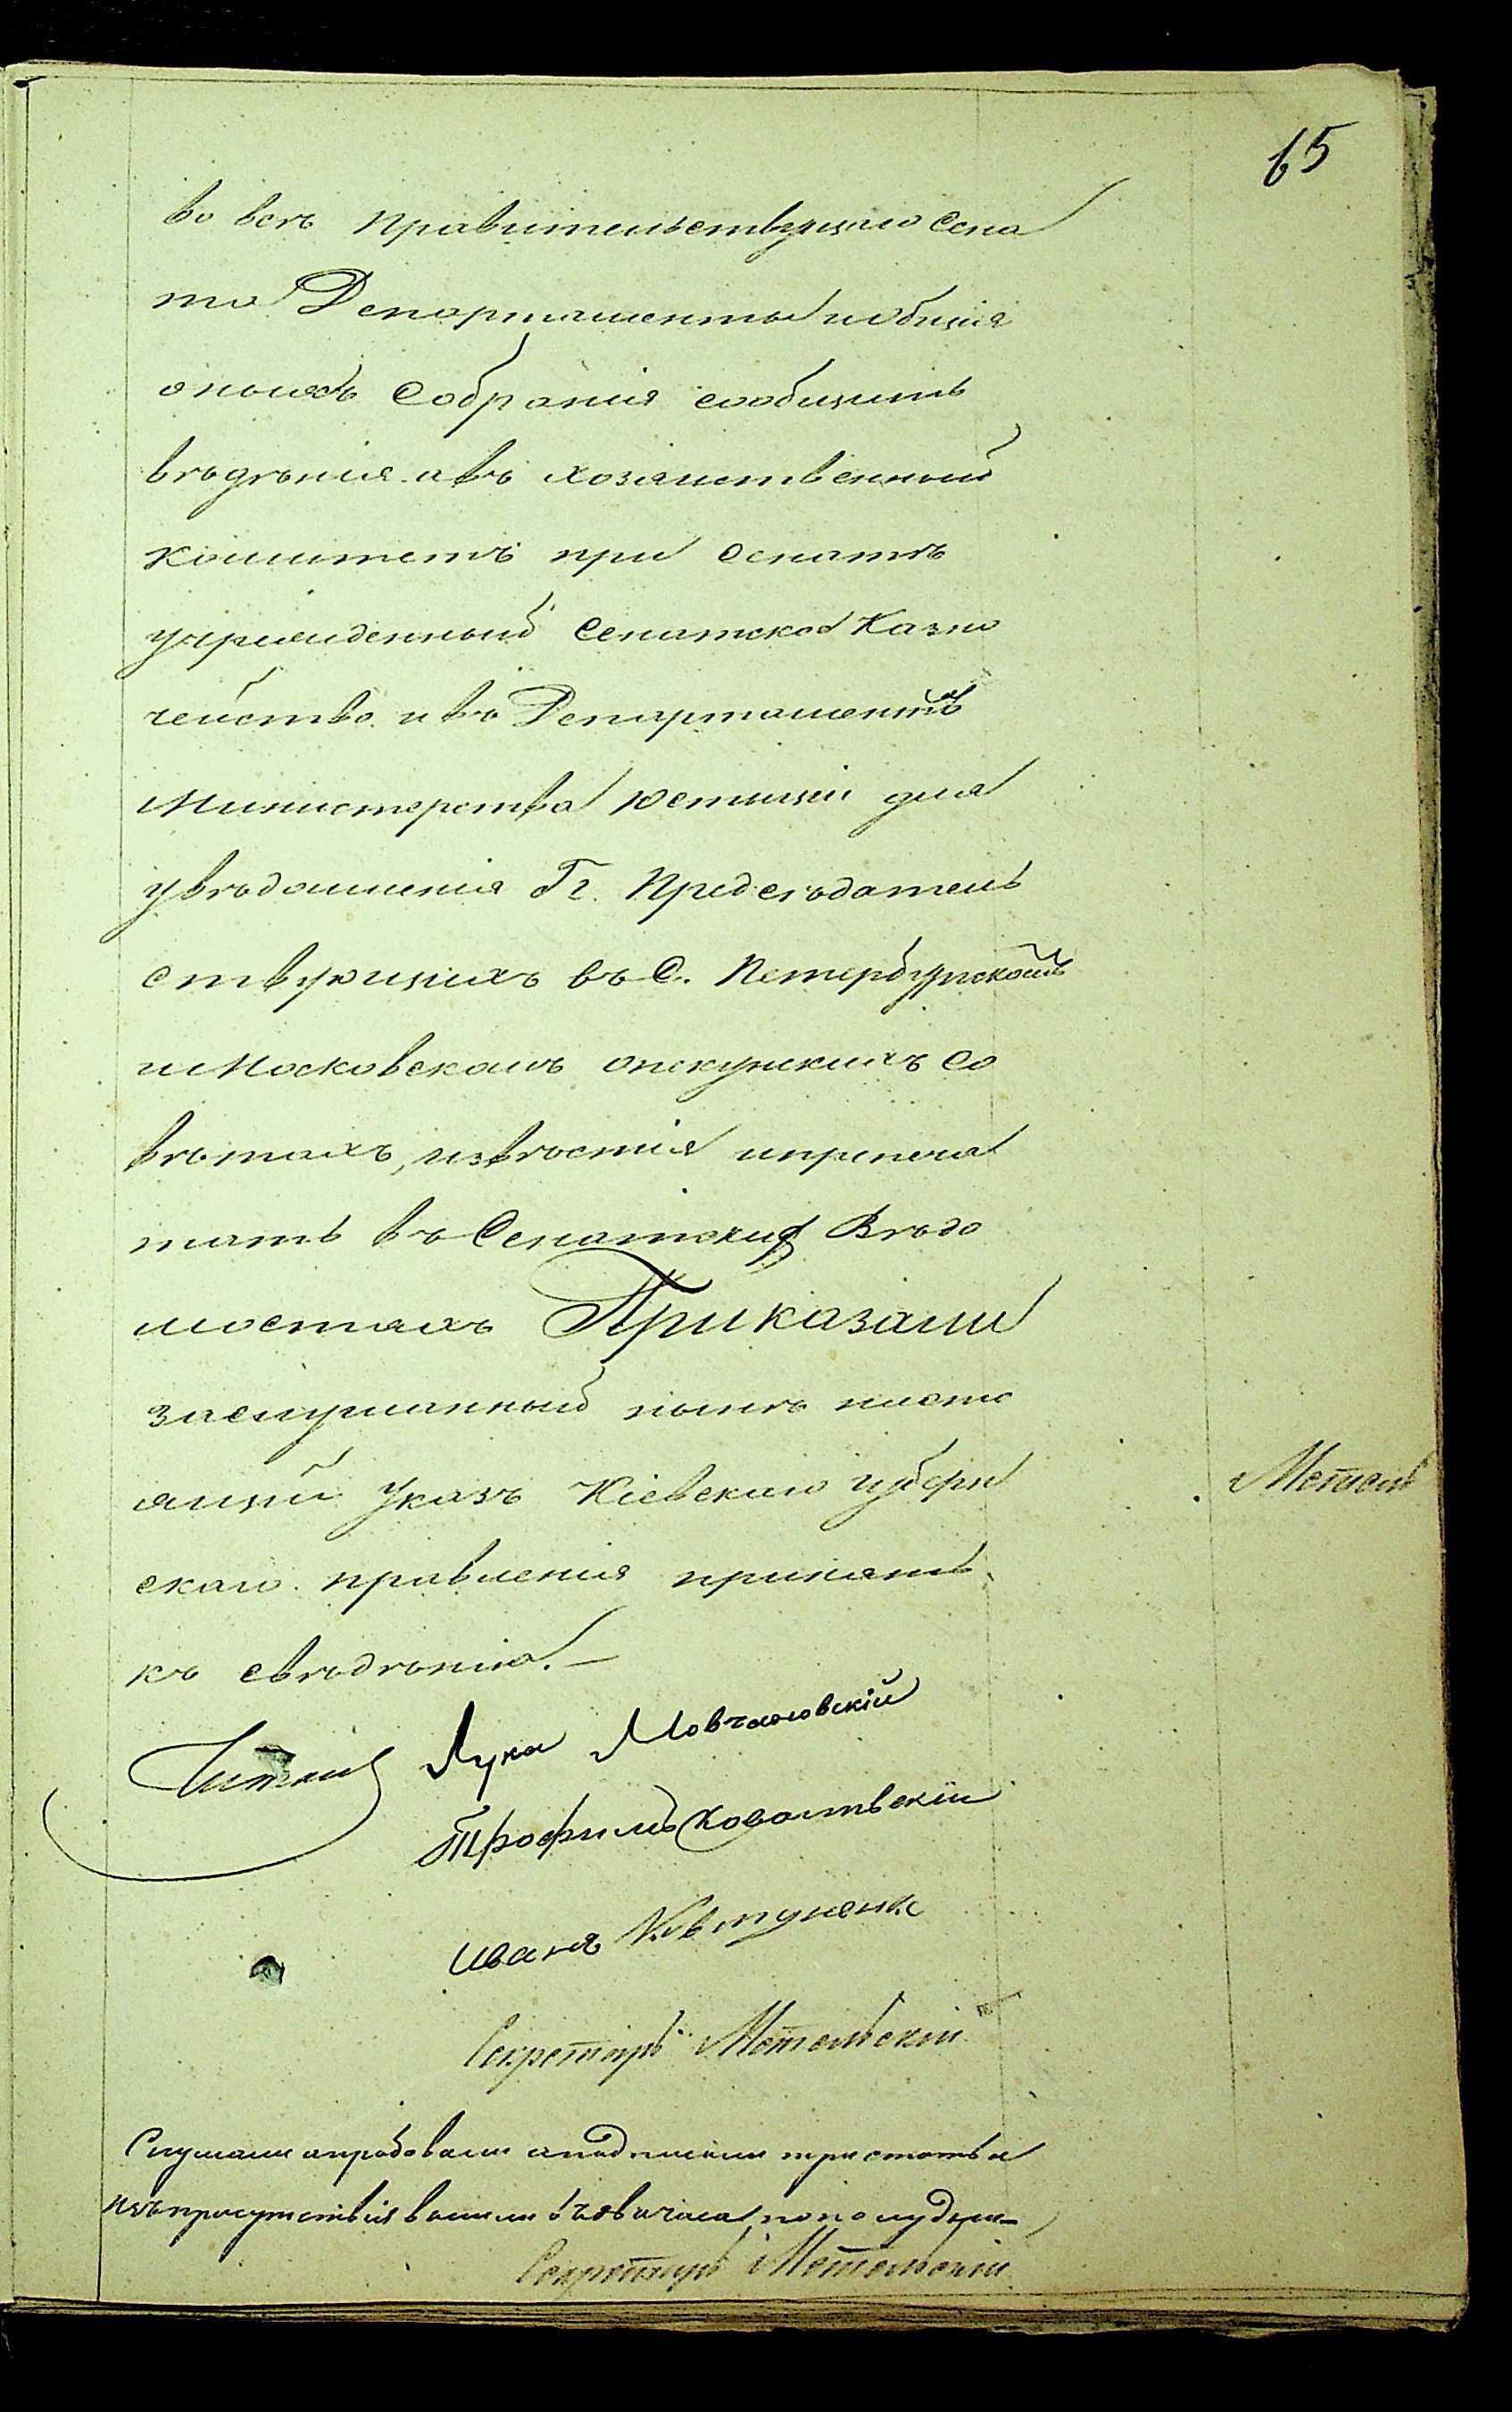 65
во всѣ Правительствующаго Сена
та Департаменты и общія
оныхъ Собранія сообщить
вѣдѣнія а въ хозяиственный
комитетъ при Сенатѣ
учрежденный Сенатское Казно
чейство и въ Департаментъ
Министерства Юстиціи для
увѣдомленія Гг. Предсѣдатель
ствующихъ въ С. Петербургскомъ
и Московскомъ опекунскихъ Со
вѣтахъ, извѣстія и припеча
тать въ Сенатских Вѣдо
мостяхъ Приказали
заслушанный нынѣ насто
ящій Указъ Кіевскаго губерн
скаго правленія принять
къ свѣдѣнію.—
Лука Мовчановскій
Трофимъ
Иванъ Ковтуненк
Секретарь Метельскій
Слушали апробовали и подписали три статьи
изъ присутствія вышли въ два часа по полудни
Секретарь Метельскій